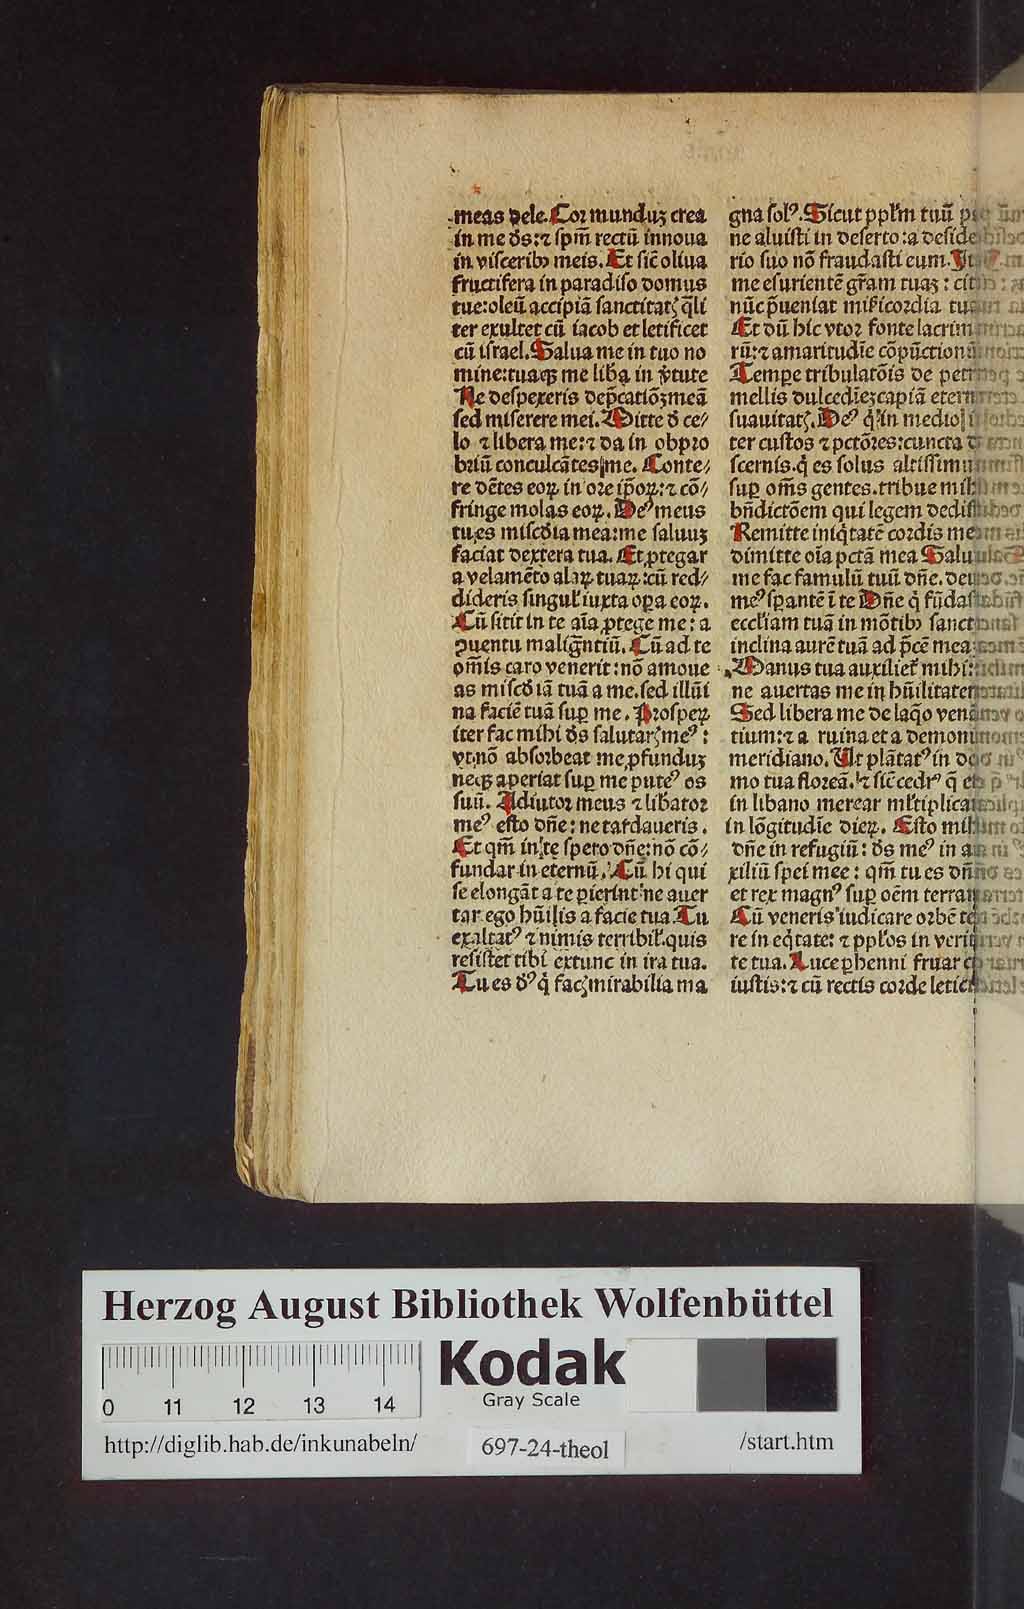 meas dele. Cor munduʒ crea
in me d̄s: ⁊ sp̄m rectū innoua
in visceribꝫ meis. Et sic̄ oliua
fructifera in paradiso domus
tue: oleū accipiā sanctitatꝭ q̄li
ter exultet cū iacob et letificet
cū israel. Salua me in tuo no
mine: tuaqꝫ me liba in v̓tute
Ne despexeris dep̄catiōʒ meā
sed miserere mei. Mitte d̄ ce⸗
lo ⁊ libera me: ⁊ da in obpro
briū conculcātes me. Conte⸗
re dētes eoꝝ in ore ip̄oꝝ: ⁊ cō⸗
fringe molas eoꝝ. Deꝰ meus
tu es misc̄dia mea: me saluuʒ
faciat dextera tua. Et ꝓtegar
a velamēto alaꝝ tuaꝝ: cū red⸗
dideris singul̓ iuxta oꝑa eoꝝ.
Cū sitit in te aīa ꝓtege me: a
ꝯuentu malig̅ntiū. Cū ad te
om̄is caro venerit: nō amoue
as misc̄diā tuā a me. sed illūi
na faciē tuā suꝑ me. Prosperꝝ
iter fac mihi d̄s salutarꝭ meꝰ:
vt nō absorbeat me ꝓfunduʒ
neqꝫ aperiat suꝑ me puteꝰ os
suū. Adiutor meus ⁊ libator
meꝰ esto dn̄e: ne tardaueris.
Et qm̄ in te spero dn̄e: nō cō⸗
fundar in eternū. Cū hi qui
se elongāt a te ꝑierint: ne auer
tar ego hūilis a facie tua. Tu
exaltatꝰ ⁊ nimis terribil̓. quis
resistet tibi extunc in ira tua.
Tu es d̄ꝰ q̓ facꝭ mirabilia ma
gna solꝰ. Sicut ppl̄m tuū
ne aluisti in deserto: a deside
rio suo nō fraudasti eum.
me esurientē gr̄am tuaʒ:
nūc p̄ueniat misicordia
Et dū hic vtor fonte lacrim
rū: ⁊ amaritudīe cōpūctionū
Tempe tribulatōis de petr
mellis dulcedīeʒ capiā etern
suauitatꝭ. Deꝰ q̓ in medio
ter custos ⁊ pctōres: cuncta
scernis. q̓ es solus altissimu
suꝑ om̄s gentes. tribue mih
bn̄dictōem qui legem dedist
Remitte iniq̓tatē cordis me
dimitte oīa pctā mea Salu
me fac famulū tuū dn̄e. deu
meꝰ sꝑantē ī te Dn̄e q̓ fūdas
eccl̄iam tuā in mōtibꝫ sanct
inclina aurē tuā ad p̄cē mea
Manus tua auxiliet̓ mihi:
ne auertas me in hūilitate
Sed libera me de laq̄o venā
tium: ⁊ a ruina et a demoni
meridiano. Ut plātatꝰ in do
mo tua floreā. ⁊ sic̄ cedrꝰ q̄
in libano merear ml̓tiplica
in lōgitudīe dieꝝ. Esto mih
dn̄e in refugiū: d̄s meꝰ in a
xiliū spei mee: qm̄ tu es dn̄
et rex magnꝰ suꝑ oēm terra
Cū veneris iudicare orbē te
re in eq̓tate: ⁊ ppl̓os in veri
te tua. Luce ꝑhenni fruar
iustis: ⁊ cū rectis corde letic
Herzog August Bibliothek Wolfenbüttel
0 11 12 13 14
Kodak
Gray Scale
http://diglib.hab.de/inkunabeln/
697-24-theol
/start.htm